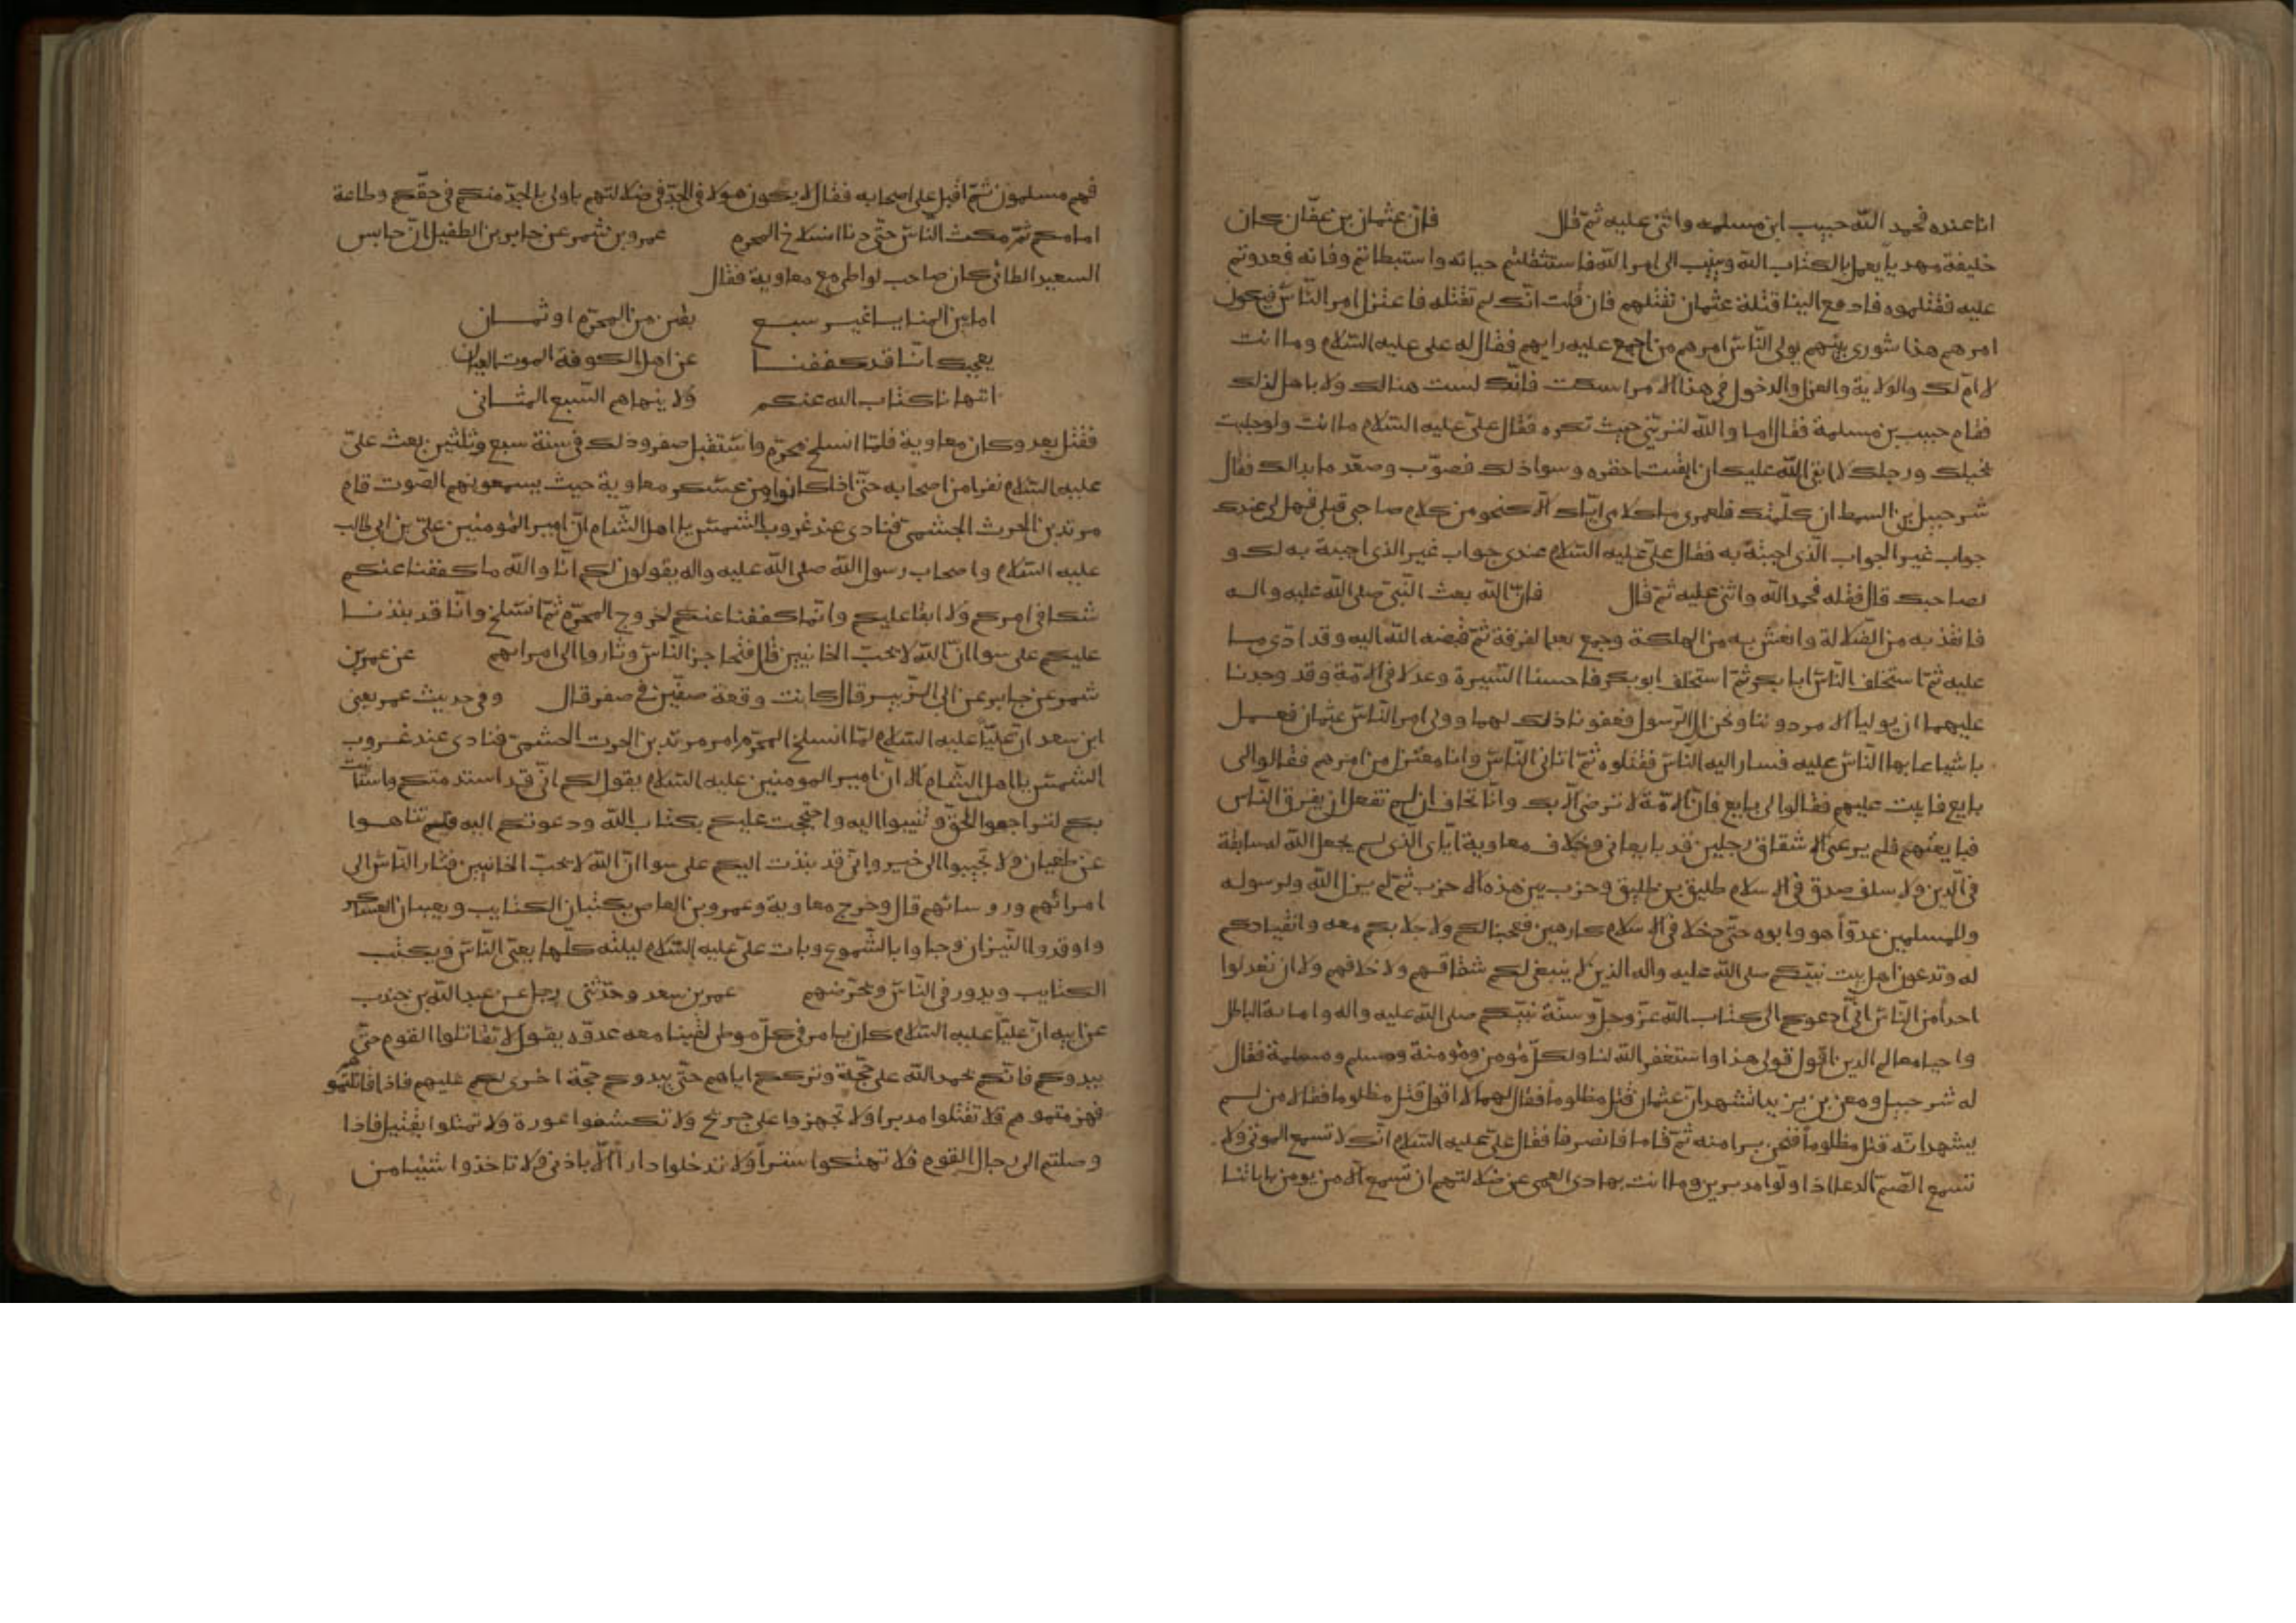 انا عنده فحمد الله حبيب ابن مسلمه واثنى عليه ثم قال فان عثمان بن عفان كان
خليفة مهديا يعمل بالكتاب الله وينيب الى امر الله فاستثقلتم حياته واستبطاتم وفاته فعدوتم
عليه فقتلموه فادفع الينا قتلة عثمان نقتلهم فان قلت انك لم تقتله فاعتزل امر الناس فيكون
امرهم هذا شورى بينهم يولى الناس امرهم من اجمع عليه رايهم فقال له على عليه السلام وما انت
لا ام لك والولاية والعزل والدخول في هذا الامر اسكت فانك لست هنالك ولا باهل لذلك
فقام حبيب بن مسلمة فقال اما والله لتريني حيث تكره فقال على عليه السلام ما انت ولو جلبت
بخيلك ورجلك لا ابقى الله عليك ان ابقيت احقره وسوا ذلك فصوب وصعد ما بدا لك فقال
شرحبيل بن السمط ان كلمتك فلعمرى ما كلامى اياك الا كنحو من كلام صاحبى قبلى فهل لى عندك
جواب غير الجواب الذى اجبته به فقال على عليه السلام عندى جواب غير الذى اجبته به لك و
لصاحبك قال فقله فحمد الله واثنى عليه ثم قال فان الله بعث النبى صلى الله عليه واله
فانقذ به من الضلالة وانعش به من الهلكة وجمع بعد الفرقة ثم قبضه الله اليه وقد ادى ما
عليه ثم استخلف الناس ابا بكر ثم استخلف ابو بكر فاحسنا السيرة وعدلا فى الامة وقد وجدنا
عليهما ان يوليا الامر دوننا ونحن ال الرسول فغفرنا ذلك لهما وولى امر الناس عثمان فعمل
باشيا عابها الناس عليه فسار اليه الناس فقتلوه ثم اتانى الناس وانا معتزل من امرهم فقالوا لى
بايع فابيت عليهم فقالوا لى بايع فان الامة لا ترضى الا بك وانا نخاف ان لم تفعل ان يفرق الناس
فبايعتهم فلم يرعنى الا شقاق رجلين قد بايعانى وخلاف معاوية اياى الذى لم يجعل الله له سابقة
فى الدين ولا سلف صدق فى الاسلام طليق بن طليق وحزب من هذه الاحزب ثم لم يزل الله ولرسوله
وللمسلمين عدوا هو وابوه حتى دخلا فى الاسلام كارهين فعجبنا لكم ولاجلابكم معه وانقيادكم
له وتدعون اهل بيت نبيكم صلى الله عليه واله الذين لا ينبغى لكم شقاقهم ولا خلافهم ولا ان تعدلوا
احدا من الناس انى ادعوكم الى كتاب الله عز وجل وسنة نبيكم صلى الله عليه واله واماتة الباطل
واحيا معالم الدين اقول قولى هذا واستغفر الله لنا ولكل مؤمن ومؤمنة ومسلم ومسلمة فقال
له شرحبيل ومعن بن يزيد اتشهد ان عثمان قتل مظلوما فقال لهما لا اقول قتل مظلوما فقالا من لم
يشهد انه قتل مظلوما فنحن برا منه ثم قاما فانصرفا فقال على عليه السلام انك لا تسمع الموتى ولا
تسمع الصم الدعا اذا ولوا مدبرين وما انت بهادى العمى عن ضلالتهم ان تسمع الا من يومن باياتنا
فهم مسلمون ثم اقبل على اصحابه فقال لا يكون هولا فى الجد فى ضلالتهم باولى بالجد منكم فى حقكم وطاعة
امامكم ثم مكث الناس حتى دنا انسلاخ المحرم عمرو بن شمر عن جابر بن الطفيل ان حابس
السعيد الطائى كان صاحب لوا طى مع معاوية فقال
اما بين المنايا غير سبع بقين من المحرم او ثمان
يعجبك انا قد كففنا عن اهل الكوفة الموت العيان
اتنهانا كتاب الله عنكم ولا ينهاهم السبع المثانى
فقتل بعد وكان معاوية فلما انسلخ محرم واستقبل صفر وذلك فى سنة سبع وثلثين بعث على
عليه السلام نفرا من اصحابه حتى اذا كانوا من عسكر معاوية حيث يسمعونهم الصوت قام
مرثد بن الحرث الجشمى فنادى عند غروب الشمس يا اهل الشام ان امير المومنين على بن ابى طالب
عليه السلام واصحاب رسول الله صلى الله عليه واله يقولون لكم انا والله ما كففنا عنكم
شكا فى امركم ولا ابقا عليكم وانما كففنا عنكم لخروج المحرم ثم انسلخ وانا قد نبذنا
عليكم على سوا ان الله لا يحب الخائنين قال فتحاجز الناس وثاروا الى امرائهم عن عمر بن
شمر عن جابر عن ابى الزبير قال كانت وقعة صفين فى صفر قال وفى حديث عمر يعنى
ابن سعد ان عليا عليه السلام لما انسلخ المحرم امر مرثد بن الحرث الجشمى فنادى عند غروب
الشمس يا اهل الشام الا ان امير المومنين عليه السلام يقول لكم انى قد استدمتكم واستانيت
بكم لتراجعوا الحق وتنيبوا اليه واحتججت عليكم بكتاب الله ودعوتكم اليه فلم تناهوا
عن طغيان ولا تجيبوا الى خير وانى قد نبذت اليكم على سوا ان الله لا يحب الخائنين فثار الناس الى
امرائهم وروسائهم قال وخرج معاوية وعمرو بن العاص يكتبان الكتايب ويعبيان العساكر
واوقدوا النيران وجاوا بالشموع وبات على عليه السلام ليلته كلها يعبى الناس ويكتب
الكتايب ويدور فى الناس ويحرضهم عمر بن سعد وحدثنى رجل عن عبد الله بن جندب
عن ابيه ان عليا عليه السلام كان يامر فى كل موطن لقينا معه عدوه يقول لا تقاتلوا القوم حتى
يبدوكم فانكم بحمد الله على حجة وترككم اياهم حتى يبدوكم حجة اخرى لكم عليهم فاذا قاتلتموهم
فهزمتموهم فلا تقتلوا مدبرا ولا تجهزوا على جريح ولا تكشفوا عورة ولا تمثلوا بقتيل فاذا
وصلتم الى رحال القوم فلا تهتكوا سترا ولا تدخلوا دارا الا باذنى ولا تاخذوا شيئا من